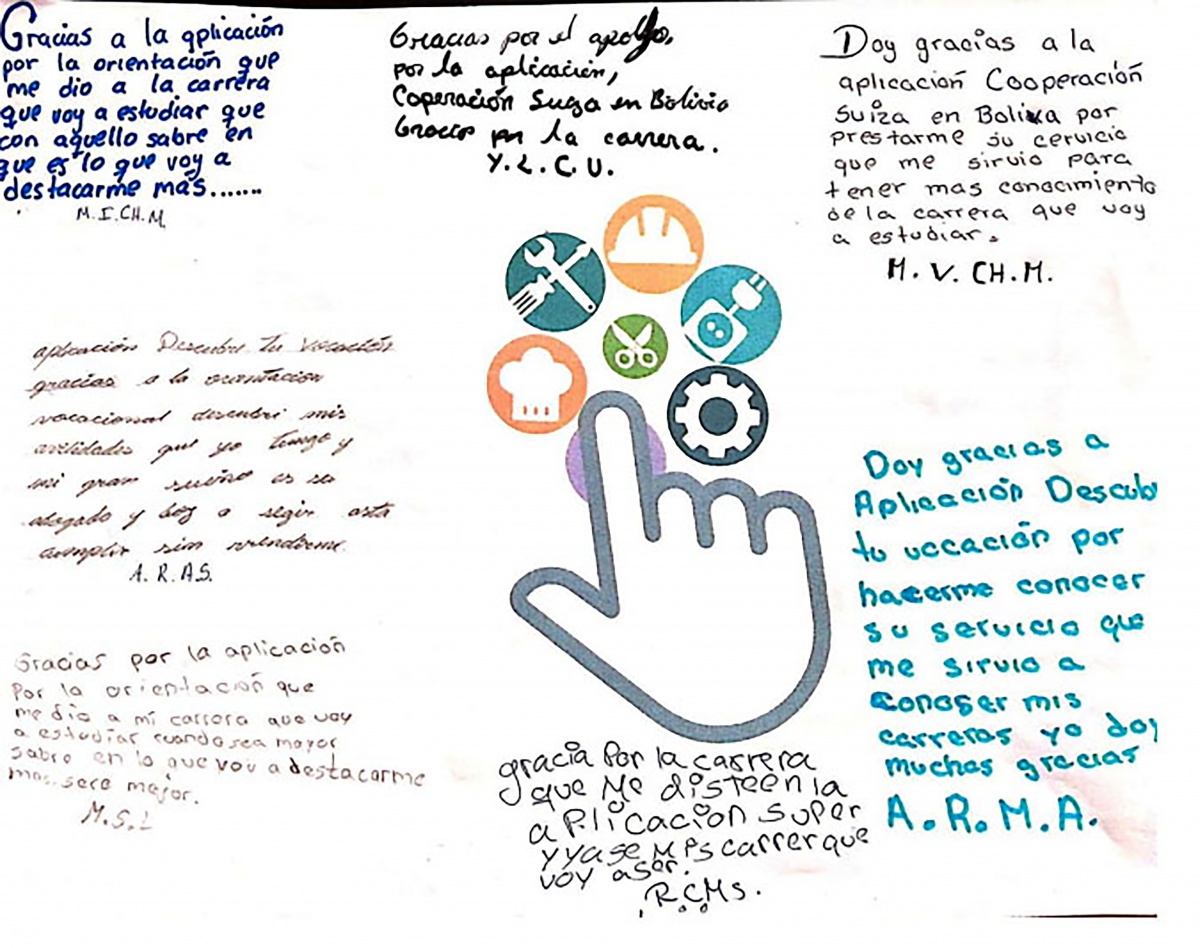 Gracias a la aplicación
por la orientación que
me dio a la carrera
que voy a estudiar que
con aquello sabre en
que es lo que voy a
destacarme más.......
M.I.CH.M.
Gracias por el apoyo,
por la aplicación,
Coperación Suiza en Bolivia
Gracias por la carrera.
Y.L.C.U.
Doy gracias a la
aplicación Cooperación
Suiza en Bolivia por
prestarme su cervicio
que me sirvio para
tener mas conocimiento
de la carrera que voy
a estudiar.
M.V.CH.M.
aplicación Descubre tu vocación
gracias a la orientación
vocacional descubri mis
avilidades que yo tengo y
mi gran sueño es ser
abogado y boy a segir asta
cumplir sin rendirme.
A.R.A.S.
Doy gracias a
Aplicación Descub
tu vocación por
hacerme conocer
su servicio que
me sirvio a
conoser mis
carreras yo doy
muchas gracias
A.R.M.A.
Gracias por la aplicación
Por la orientación que
me dio a mi carrera que voy
a estudiar cuando sea mayor
sabre en lo que voy a destacarme
mas. sere mejor.
M.S.L
gracia Por la carrera
que Me disteen la
aplicacion super
y yase mis carrer que
voy aser.
R.C.Ms.